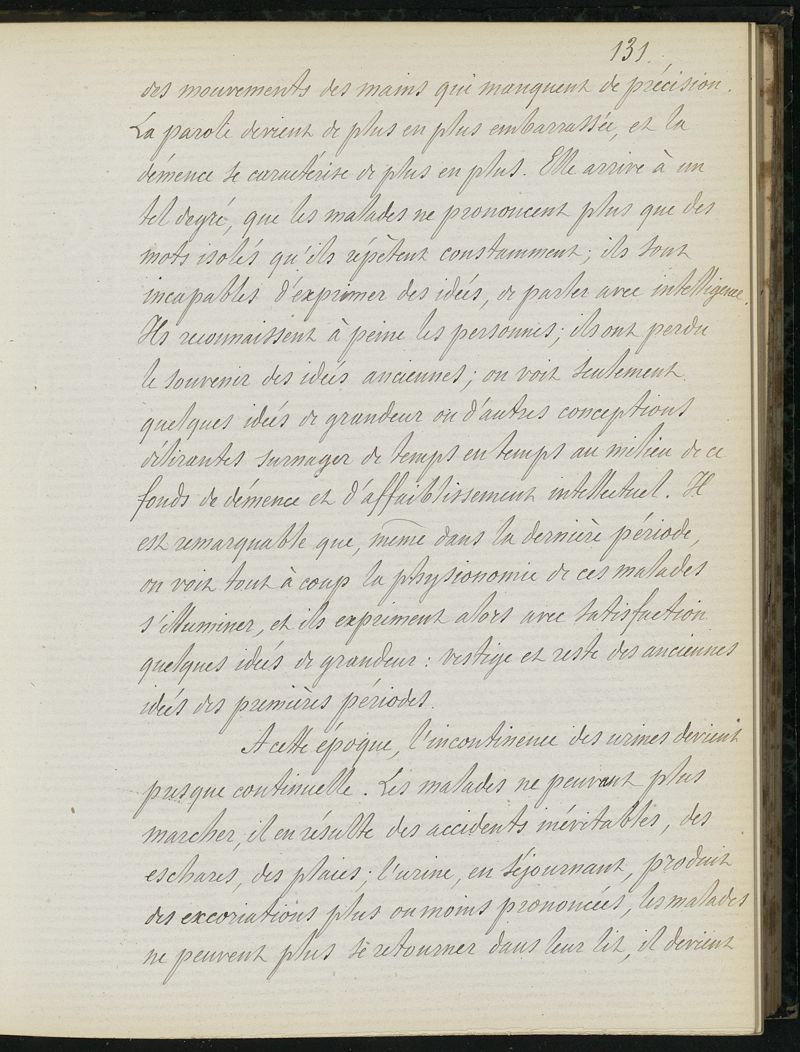 131.
des mouvements des mains qui manquent de précision.
La parole devient de plus en plus embarrassée, et la
démence se caractérise de plus en plus. Elle arrive à un
tel degré, que les malades ne prononcent plus que des
mots isolés qu'ils répètent constamment; ils sont
incapables d'exprimer des idées, de parler avec intelligence.
Ils reconnaissent à peine les personnes; ils ont perdu
le souvenir des idées anciennes; on voit seulement
quelques idées de grandeur ou d'autres conceptions
délirantes surnager de temps en temps au milieu de ce
fonds de démence et d'affaiblissement intellectuel. Il
est remarquable que, même dans la dernière période,
on voit tout à coup la physionomie de ces malades
s'illuminer, et ils expriment alors avec satisfaction
quelques idées de grandeur: vestige et reste des anciennes
idées des premières périodes.
A cette époque, l'incontinence des urines devient
presque continuelle. Les malades ne peuvent plus
marcher, il en résulte des accidents inévitables, des
eschares, des plaies; l'urine, en séjournant, produit
des excoriations plus ou moins prononcées, les malades
ne peuvent plus se retourner dans leur lit, il devient